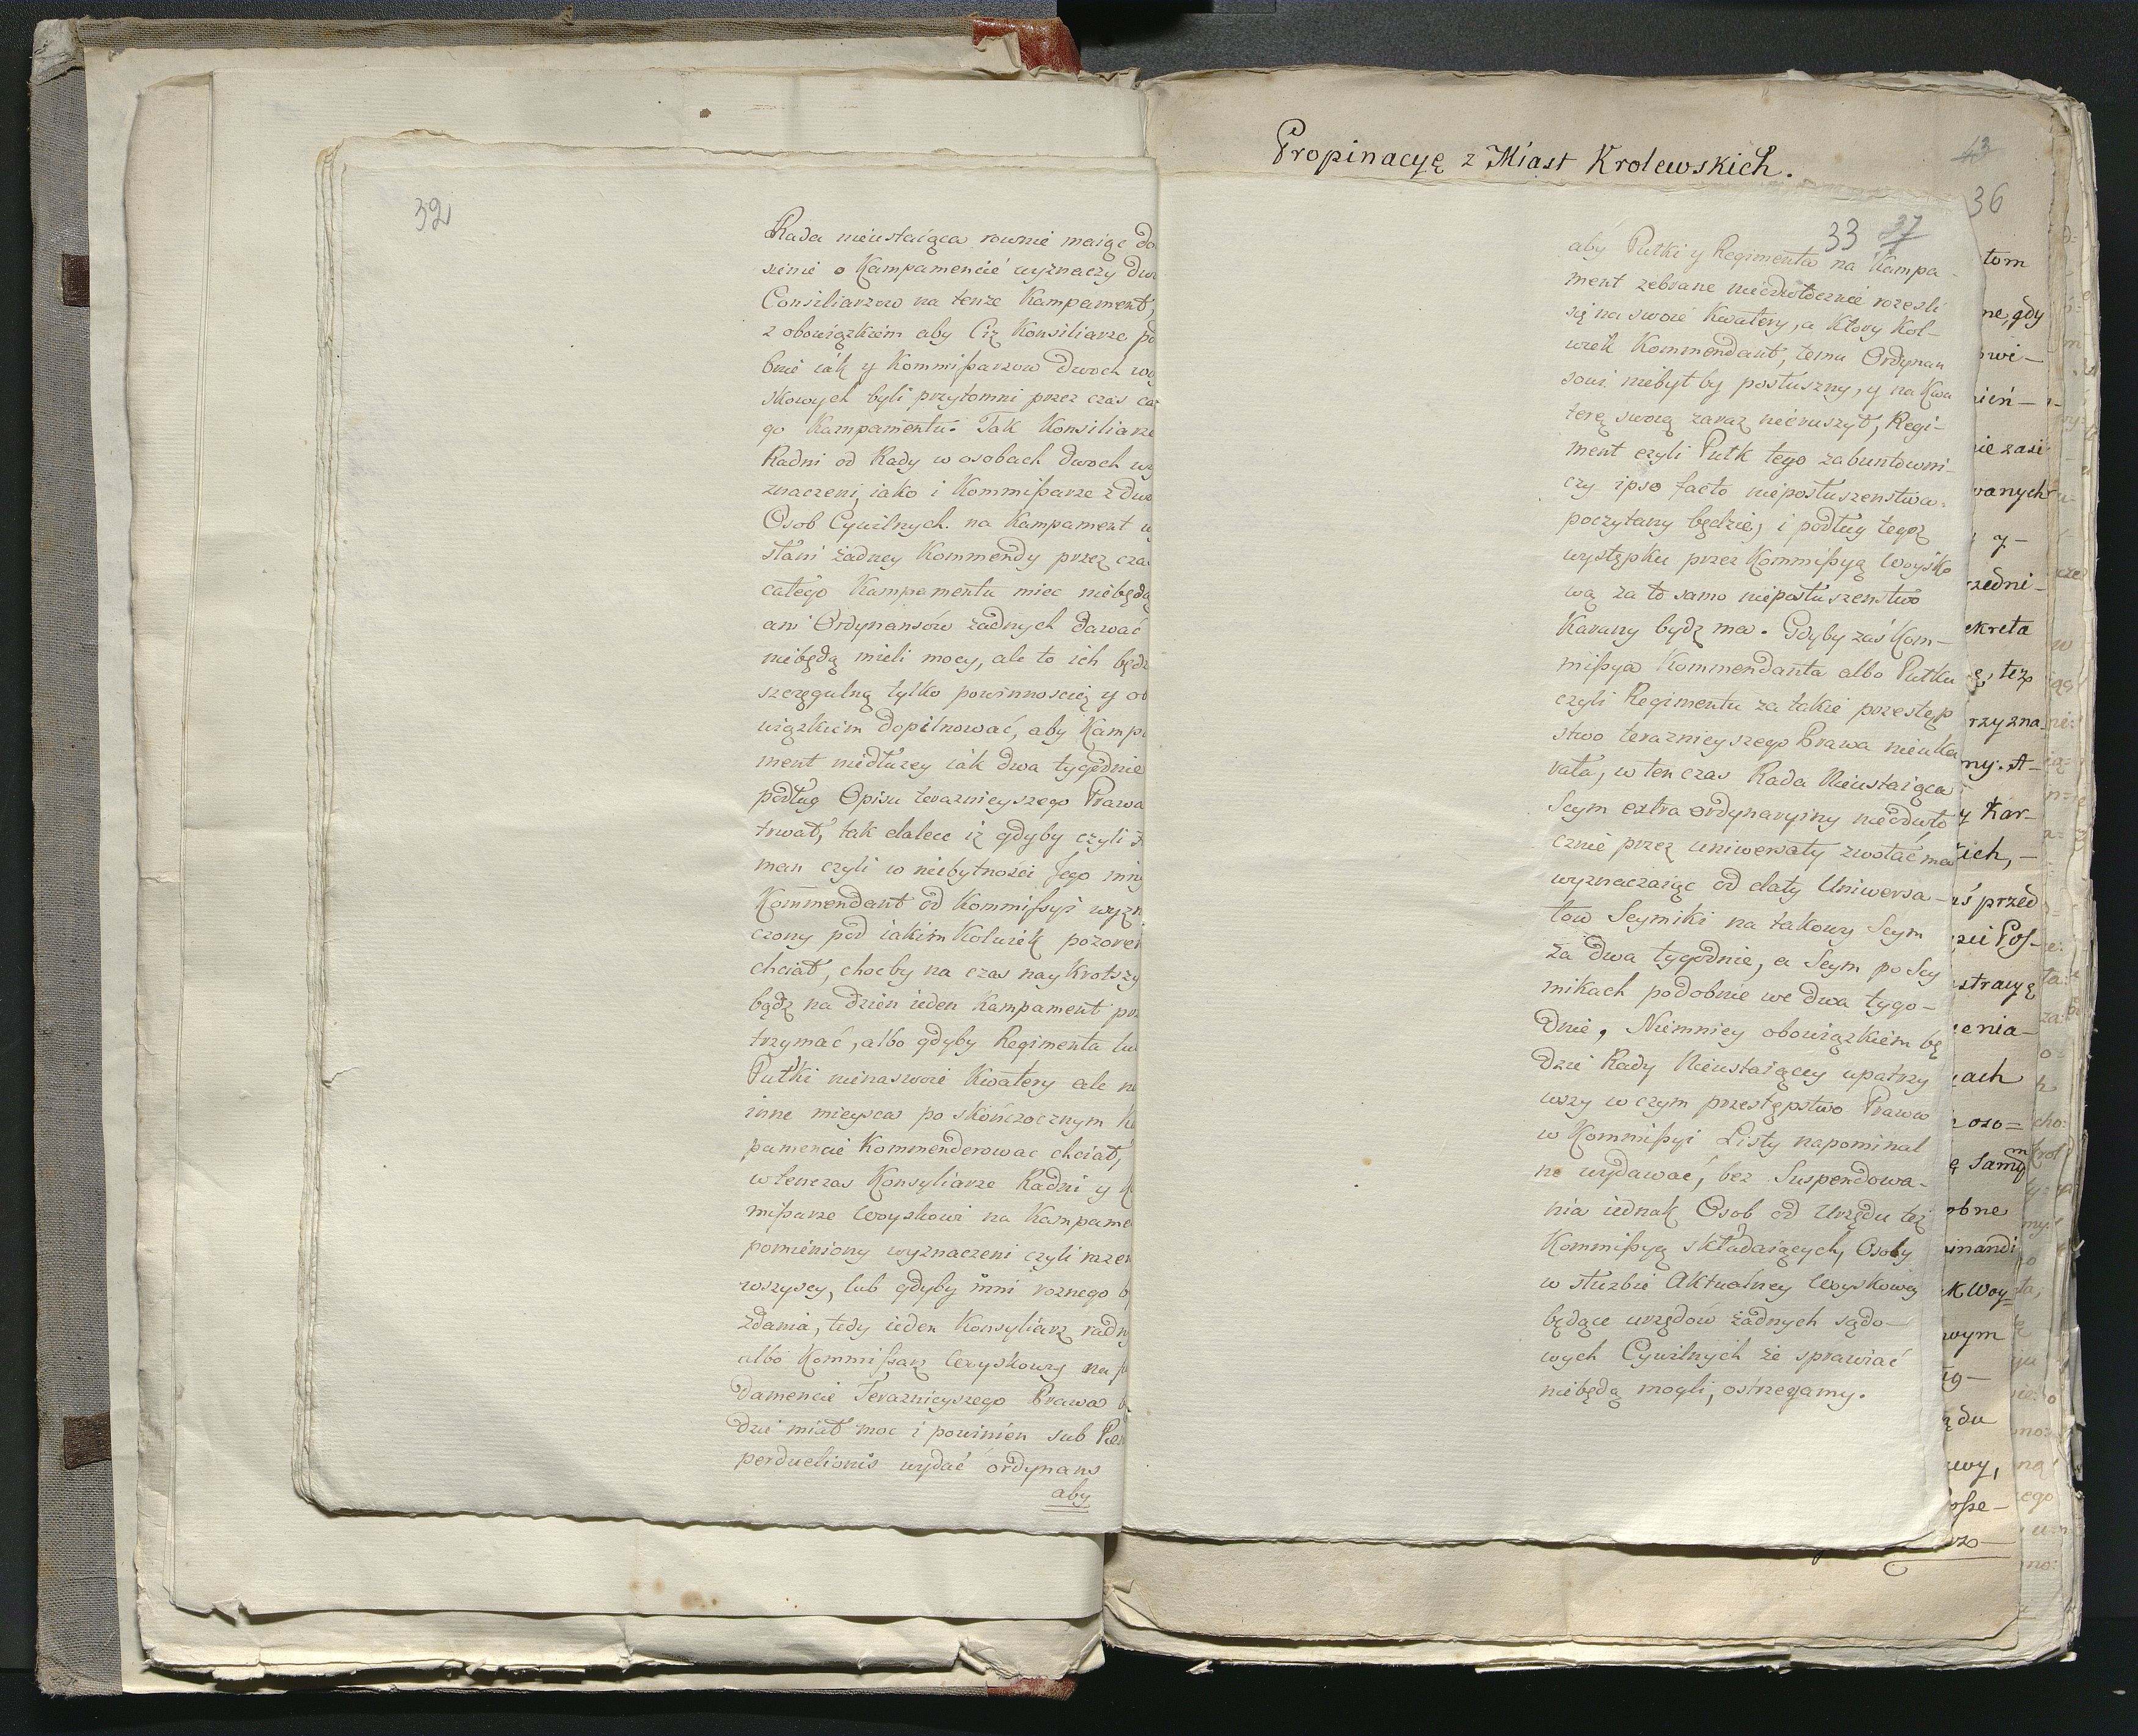 32
Rada nieustaiąca rownie maiąc do
sienie o Kampamencie wyznaczy dwo
Consiliarzow na tenze Kampament,
z obowiązkiem aby Ciz Konsiliarze po
bnie iák y Kommißarzow dwoch woy
skowych byli przytomni przez czas cał
go Kampamentu. Tak Konsiliarze
Radni od Rady w osobach dwoch wy
znaczeni, iako i Kommißarze z dwo
Osob Cywilnych. na Kampament wy
słani żadney Kommendy przez czas
całego Kampamentu miec niebędą
ani Ordynansów żadnych dawać
niebędą mieli mocy, ale to ich będz
szczegulną tylko powinnoscią y ob
wiązkiem dopilnować, aby Kampa
ment niedłuzey iák dwa tygodnie
podług Opisu teraznieyszego Prawa
trwał, tak dalece iz gdyby czyli H
man czyli w niebytnosci Jego inny
Kommendant od Kommißyi wyzn
czony pod iakimkolwiek pozorem
chciał, choćby na czas naykrotszy
bądz na dzien ieden Kampament prz
trzymać, albo gdyby Regimenta lub
Pułki nienaswoie Kwatery ale na
inne mieysca po skończocznym Ka
pamencie Kommenderowac chciał,
wtenczas Konsyliarze Radni y K
mißarze Woyskowi na Kampame
pomieniony wyznaczeni czyli razem
wszyscy, lub gdyby inni roznego b
zdania, tedy ieden Konsyliarz radny
albo Kommißarz Woyskowy na fu
damencie Teraznieyszego Prawa b
dzie miał moc i powinien sub Pœn
perduelionis wydać ordynans
aby
Propinacyę z Miast Krolewskich.
43
36
33 37
aby Pułki y Regimenta na Kampa-
ment zebrane nieodwłocznie rozeszli
się na swoie Kwatery, a Ktory Kol-
wiek Kommendant, temu Ordynan
sowi niebył by posłuszny, y na Kwa
terę swoią zaraz nieruszył, Regi-
ment czyli Pułk tego zabuntowni-
czy ipso facto nieposłuszenstwa.
poczytany będzie, i podług tegoz
występku przez Kommißyą Woysko
wą za to samo nieposłuszenstwo
Karany bydz ma. Gdyby zaś Kom-
mißya Kommendanta albo Pułku
czyli Regimentu za takie przestęp
stwo teraznieyszego Prawa nieuka
rała, w ten czas Rada Nieustaiąca
Seym extra ordynaryiny nieodwło
cznie przez uniwersały zwołać ma
wyznaczaiąc od daty Uniwersa-
łow Seymiki na takowy Seym
za dwa tygodnie, a Seym po Sey
mikach podobnie we dwa tygo-
dnie, Niemniey obowiązkiem bę
dzie Rady Nieustaiącey upatrzy
wszy w czym przestępstwo Prawa
w Kommißyi Listy napominal
ne wydawać, bez Suspendowa-
nia iednak Osob od Urzędu tęż
Kommißyą składaiących, Osoby
w służbie Aktualney Woyskowey
będące urzędów żadnych sądo-
wych Cywilnych że sprawiać
niebędą mogli, ostrzegamy.
tom
ne, gdy
wi-
ien-
ie zasi
wanych
y-
zedni-
ekreta
ę, też
rzyzna
ny. A-
y Kar-
ich,-
ś przed
ei Pos-
stracyę
enia-
ach
oso=
ę Samym
obne
inandi
k Woy=
wym
ig-
ędu
wy,
oße-
zo-